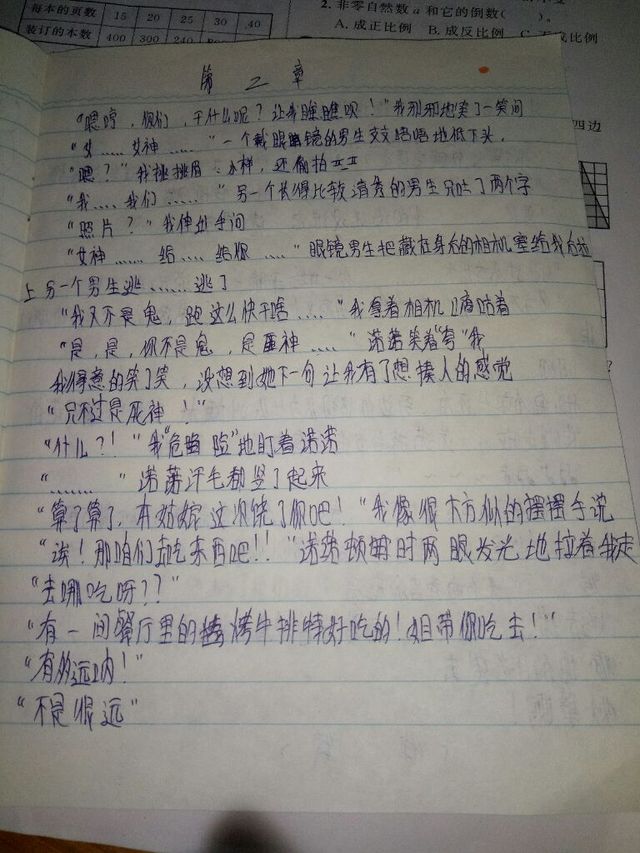 每本的页数 15 20 25 30 40
装订的本数 400 300 240
2. 非零自然数a和它的倒数( )。
A. 成正比例 B. 成反比例 C. 不成比例
四边
第二章
“嗯哼,你们,干什么呢?让我瞧瞧呗!”我邪邪地笑了一笑问
“女……女神……”一个戴眼镜的男生支支唔唔地低下头,
“嗯?”我挑挑眉:小样,还偷拍
“我……我们……”另一个长得比较清秀的男生只吐了两个字
“照片?”我伸出手问
“女神……给……给你……”眼镜男生把藏在身后的相机塞给我后拉
上另一个男生逃……逃了
“我又不是鬼,跑这么快干啥……”我拿着相机嘀咕着
“是,是,你不是鬼,是神……”诺诺笑着“夸”我
我得意的笑了笑,没想到她下一句让我有了想揍人的感觉
“只不过是死神!”
“什么?!”我“危险”地盯着诺诺
“……”诺诺汗毛都竖了起来
“算了算了,本姑娘这次饶了你吧!”我像很大方似的摆摆手说
“诶!那咱们去吃东西吧!!”诺诺顿时两眼发光地拉着我走
“去哪吃呀??”
“有一间餐厅里的烤牛排特好吃的!姐带你吃去!”
“有多远呐!”
“不是很远”